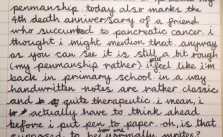 penmanship today also marks the
4th death anniversary of a friend
who succumbed to pancreatic cancer. i
thought i might mention that anyway
as you can see it is still a bit rough
(my penmanship rather) i feel like i'm
back in primary school in a way
handwritten notes are rather classic
and quite therapeutic i mean, i
actually have to think ahead
before i put pen to paper. oh, is that
supposed to be normally writes?